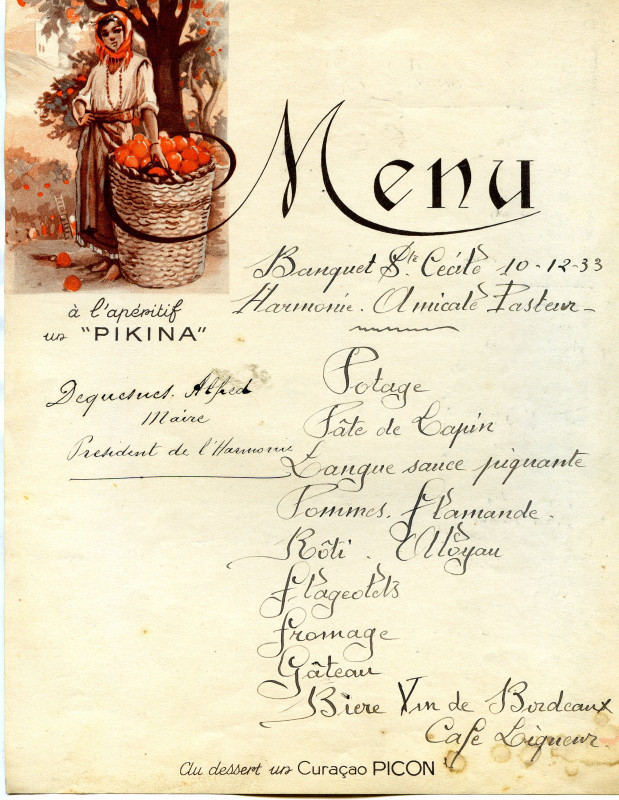 Menu
Banquet Ste Cécile 10-12-33
Harmonie. Amicale Pasteur
à l'apéritif
un "PIKINA"
Dequesnes. Alfred
Maire
Président de l'Harmonie
Potage
Pâte de Lapin
Langue sauce piquante
Pommes. flamande.
Rôti. Aloyau
flageolets
fromage
Gâteau
Biere Vin de Bordeaux
Cafe Liqueur.
Au dessert un Curaçao PICON